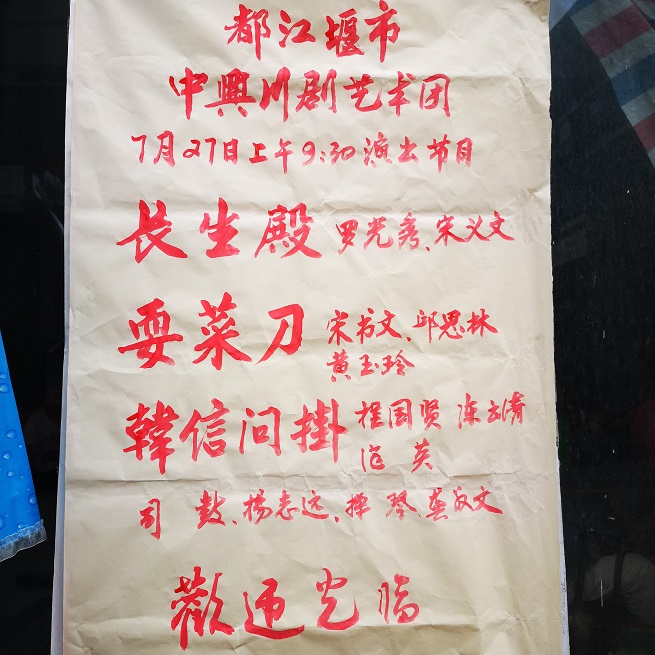 都江堰市
中興川剧艺术团
7月27日上午9:30演出节目
长生殿 罗光秀、宋义文
耍菜刀 宋书文、邱思林
黄玉玲
韓信问掛 程国贤 陈志清
范英
司鼓、楊志远、揮琴龚敬文
歡迎光临